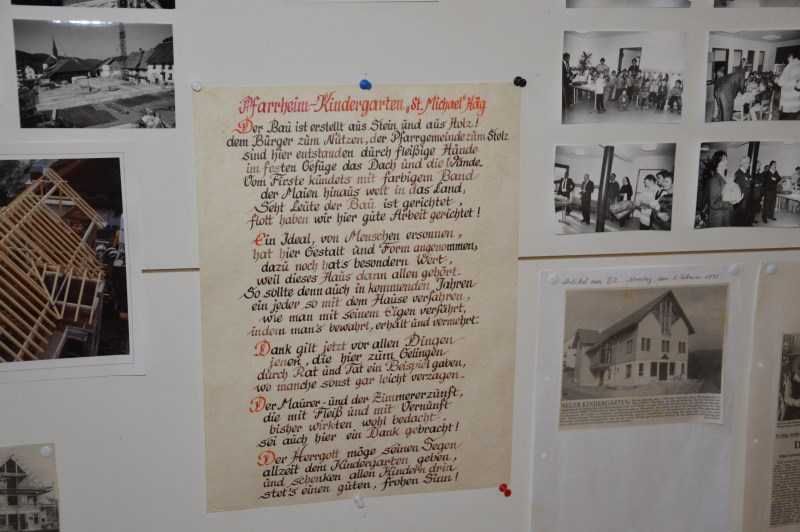 Pfarrheim-Kindergarten „St. Michael" Häg
Der Bau ist erstellt aus Stein und aus Holz!
dem Bürger zum Nutzen, der Pfarrgemeinde zum Stolz
sind hier entstanden durch fleißige Hände
im festen Gefüge das Dach und die Wände.
Vom Firste kündets mit farbigem Band
der Maien hinaus weit in das Land,
Seht Leute der Bau ist gerichtet,
flott haben wir hier gute Arbeit gerichtet!
Ein Ideal, von Menschen ersonnen,
hat hier Gestalt und Form angenommen,
dazu noch hat's besondern Wert,
weil dieses Haus dann allen gehört.
So sollte denn auch in kommenden Jahren
ein jeder so mit dem Hause verfahren,
wie man mit seinem Eigen verfährt,
indem man's bewahrt, erhält und vermehrt.
Dank gilt jetzt vor allen Dingen
jenen, die hier zum Gelingen
durch Rat und Tat ein Beispiel gaben,
wo manche sonst gar leicht verzagen.
Der Maurer- und der Zimmererzunft,
die mit Fleiß und mit Vernunft
bisher wirkten wohl bedacht,
sei auch hier ein Dank gebracht!
Der Herrgott möge seinen Segen
allzeit dem Kindergarten geben,
und schenken allen Kindern drin
stet's einen guten, frohen Sinn!
Artikel aus BZ Montag, den Februar 1993
NEUER KINDERGARTEN